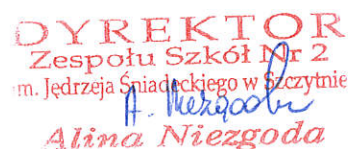 DYREKTOR
Zespołu Szkół Nr 2
m. Jędrzeja Śniadeckiego w Szczytnie
A. Niezgoda
Alina Niezgoda